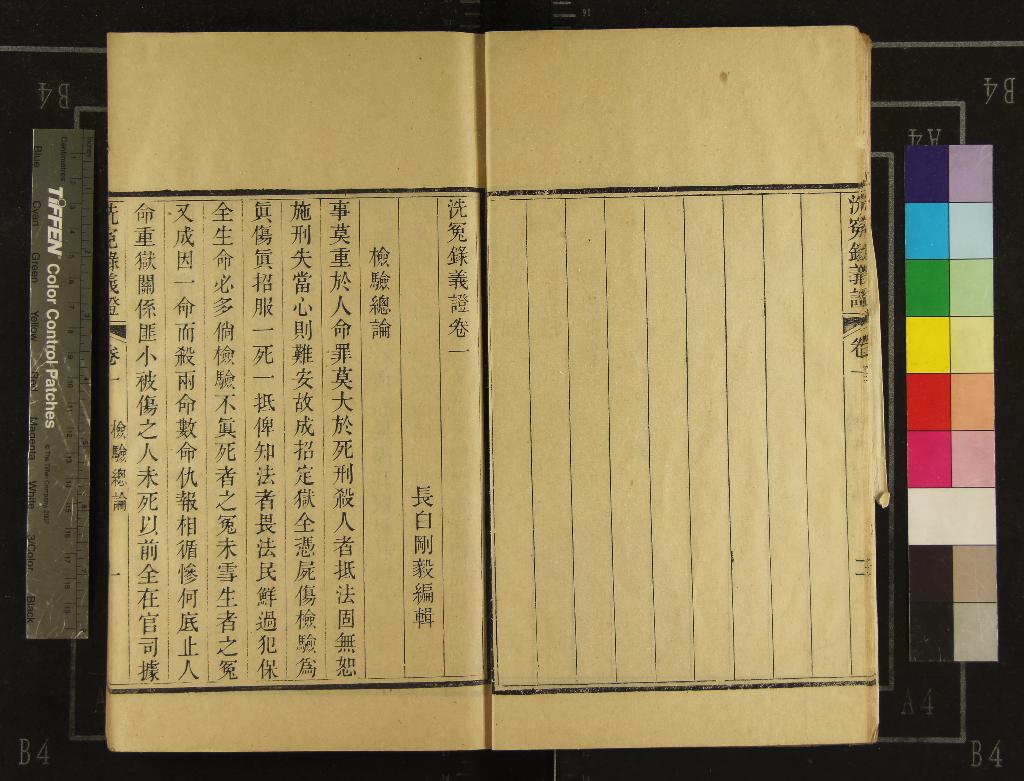 洗冤錄義證
卷一
二
洗冤錄義證卷一
長白剛毅編輯
檢驗總論
事莫重於人命罪莫大於死刑殺人者抵法固無恕
施刑失當心則難安故成招定獄全憑屍傷檢驗爲
眞傷眞招服一死一抵俾知法者畏法民鮮過犯保
全生命必多倘檢驗不眞死者之冤未雪生者之冤
又成因一命而殺兩命數命仇報相循慘何底止人
命重獄關係匪小被傷之人未死以前全在官司據
洗冤錄義證
卷一
檢驗總論
一
TIFFEN Color Control Patches
Centimetres
Inches
Blue
Cyan
Green
Yellow
Red
Magenta
White
3/Color
Black
© The Tiffen Company, 2007
B4
B4
A4
B4
A4
B4